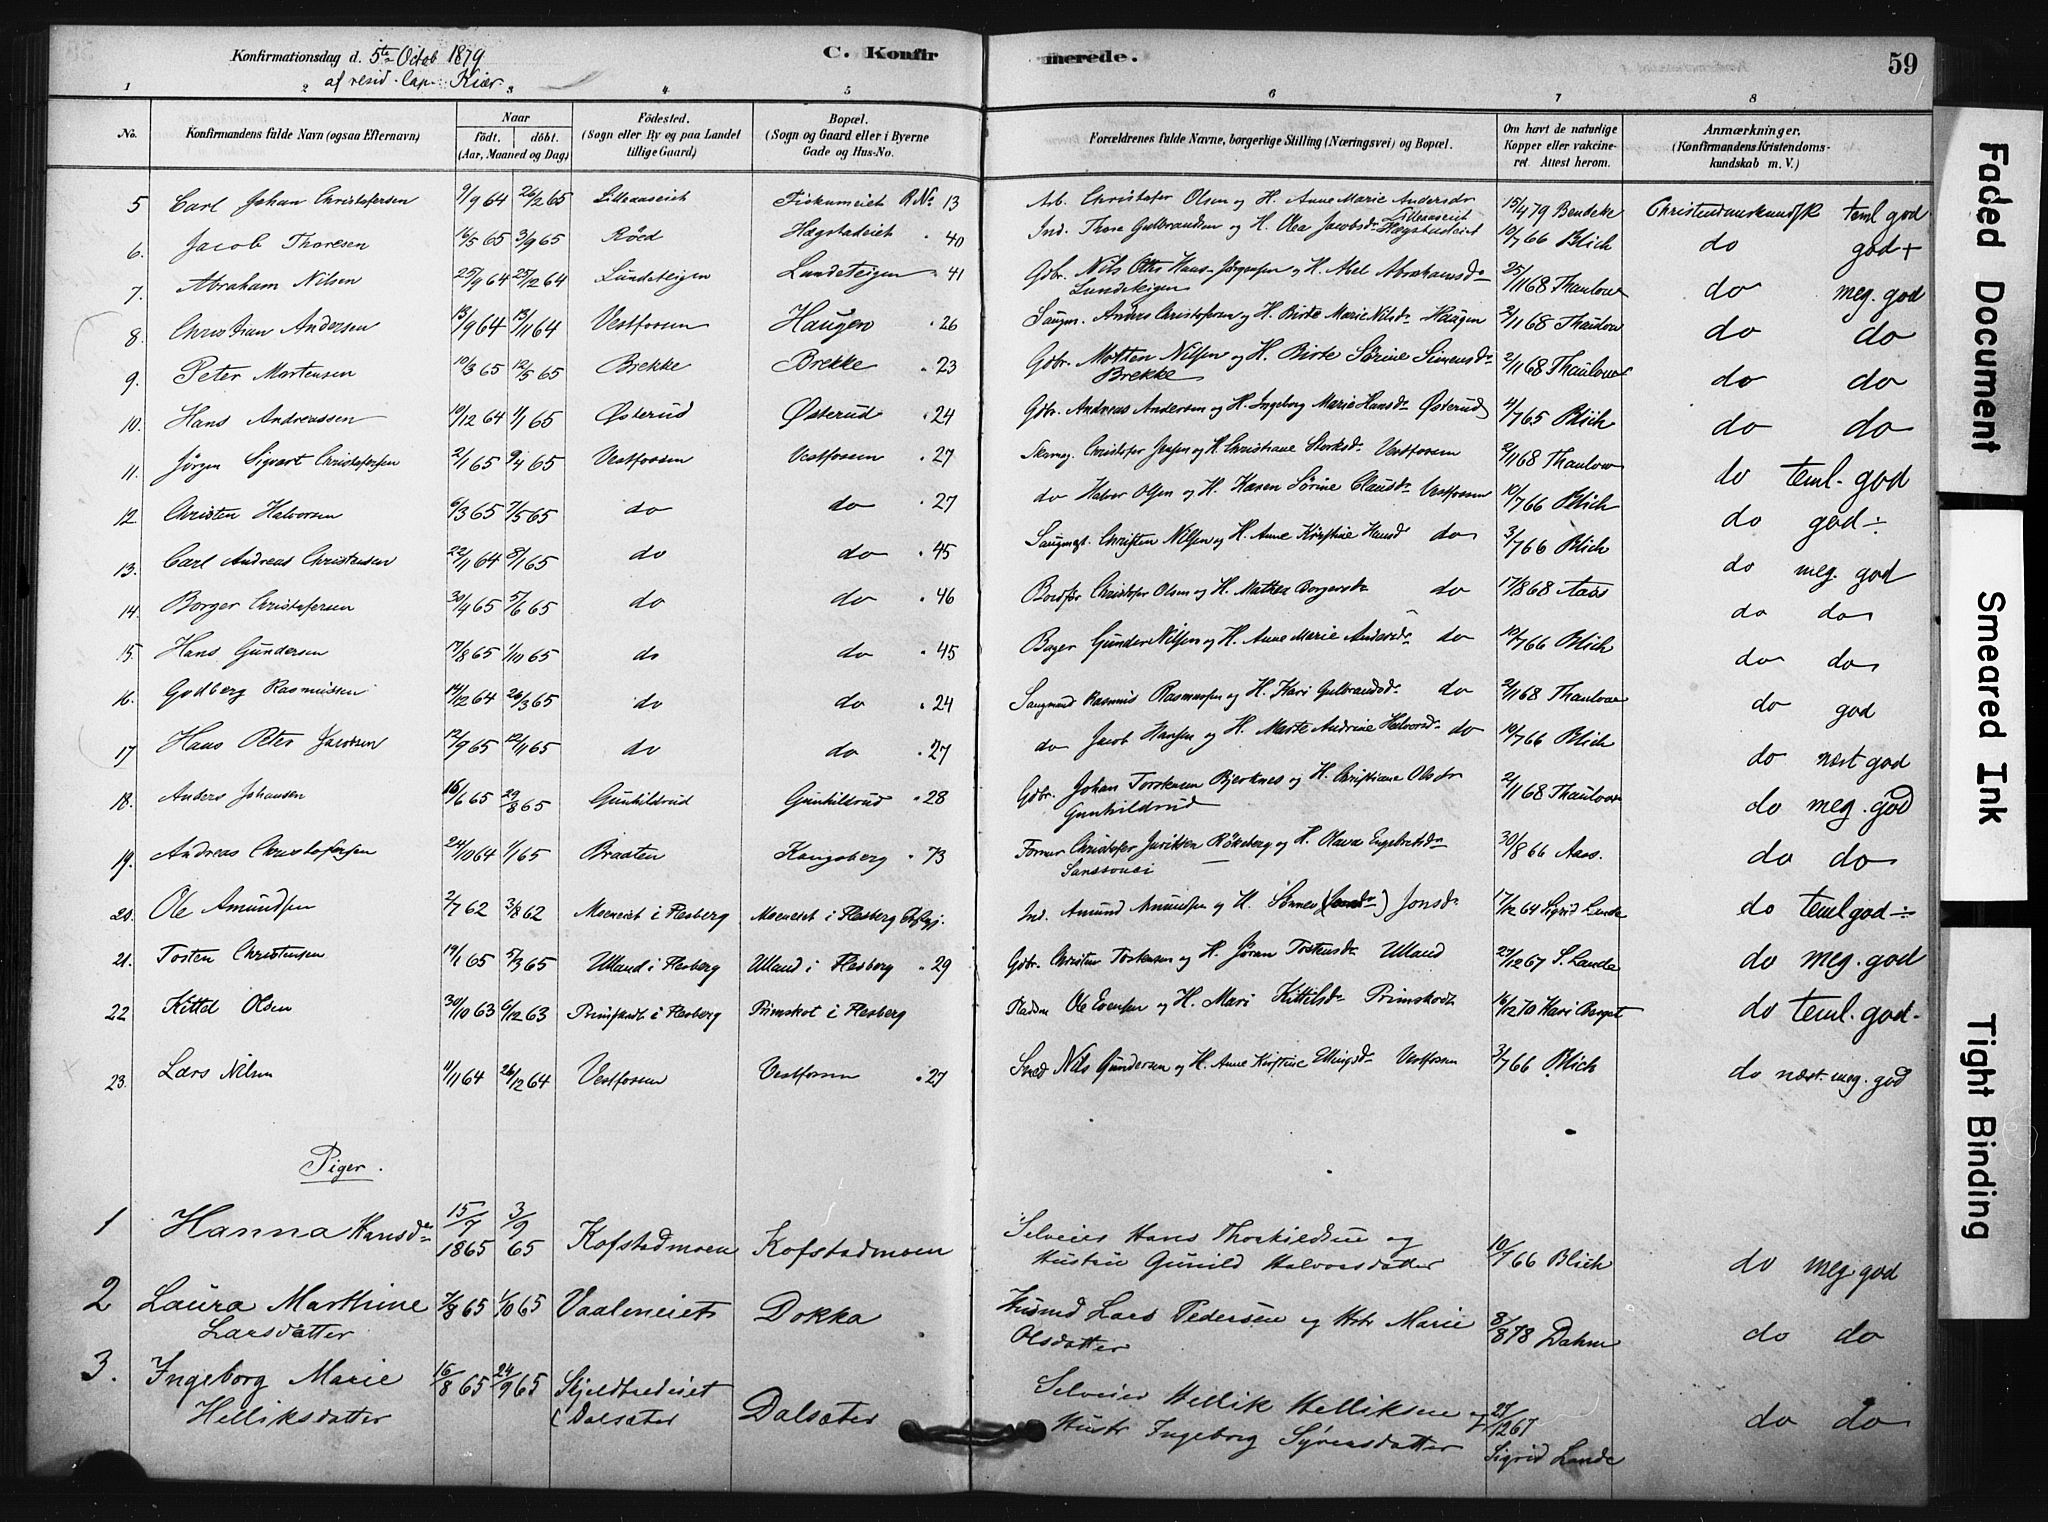 Konfirmationsdag d. 5te Octob 1879 C. Konfirmerede. 59
af resid. Cap. Kiær.
1 2 3 4 5 6 7 8
No. Konfirmandens fulde Navn (ogsaa Efternavn) Naar født. døbt. (Aar, Maaned og Dag) Fødested. (Sogn eller By og paa Landet tillige Gaard) Bopæl. (Sogn og Gaard eller i Byerne Gade og Hus-No. Forældrenes fulde Navne, borgerlige Stilling (Næringsvei) og Bopæl. Om havt de naturlige Kopper eller vakcineret. Attest herom. Anmærkninger. (Konfirmandens Kristendomskundskab m. V.)
5 Carl Johan Christofersen 9/9 64 26/2 65 Lilleaaseiet Fiskumeiet R No 13 Arb. Christofer Olsen og H. Anne Marie Andersdr Lilleaaseiet 15/4 79 Bendeke Christendomskundsk teml god
6. Jacob Thoresen 16/5 65 3/9 65 Røed Hægstadeiet " 40 Ind. Thore Gulbrandsen og H. Olea Jacobsdr Hægstadeiet 10/7 66 Blich do god+
7. Abraham Nilsen 25/9 64 25/12 64 Lundeteigen Lundeteigen " 41 Gdbr. Nils Otto Hans-Jørgensen og H. Abel Abrahamsdr Lundeteigen 25/11 68 Thaulow do meg. god
8. Christian Andersen 13/9 64 13/11 64 Vestfossen Haugen " 26 Saugm. Anders Christofersen og H. Birte Marie Nilsdr Haugen 2/11 68 Thaulow do do
9. Peter Mortensen 10/3 65 12/5 65 Brekke Brekke " 23 Gdbr. Morten Nilsen og H. Birte Sørine Simensdr Brekke 2/11 68 Thaulow do do
10. Hans Andreassen 10/12 64 1/1 65 Østerud Østerud " 24 Gdbr. Andreas Andersen og H. Ingeborg Marie Hansdr Østerud 4/7 65 Blich do do
11. Jörgen Sigvart Christofersen 2/1 65 9/4 65 Vestfossen Vestfossen " 27 Christofer Jensen og H Christiane Storksdr Vestfossen 2/11 68 Thaulow do teml. god
12 Christen Halvorsen 6/3 65 7/5 65 do do " 27 do Halvor Olsen og H. Karen Sörine Clausdr Vestfossen 10/7 66 Blich do god ÷
13. Carl Andreas Christensen 22/11 64 8/1 65 do do " 45 Saugmst. Christen Nilsen og H. Anne Kirstine Hansd do 3/7 66 Blich do meg. god
14. Borger Christofersen 30/4 65 5/6 65 do do " 46 Christofer Olsen og H. Mathea Borgersdr do 17/8 68 Aass do do
15. Hans Gundersen 17/8 65 1/10 65 do do " 45 Bager Gunder Nilsen og H. Anne Marie Andersdr do 10/7 66 Blich do do
16. Gudberg Rasmussen 14/12 64 26/3 65 do do " 24 Saugmand Rasmus Rasmussen og H. Kari Gulbrandsdr do 2/11 68 Thaulow do god
17 Hans Peter Jacobsen 12/9 65 12/11 65 do do " 27 do Jacob Hansen og H. Marte Andrine Halvorsdr do 10/7 66 Blich do næst god
18. Anders Johansen 16/6 65 29/8 65 Gunhildrud Gunhildrud " 28 Gdbr. Johan Torstensen Bjerknes og H. Christiane Olsdr Gunhildrud 2/11 68 Thaulow do meg. god
19. Andreas Christofersen 24/10 64 1/1 65 Braaten Kongsberg " 73 Former Christofer Røkeberg og H. Olava Engebretsdr Sanssouci 30/8 66 Aass. do do
20. Ole Amundsen 2/7 62 3/8 62 Moeneiet i Flesberg Moeneiet i Flesberg Ind. Amund Amundsen og H. Jonsdr 17/12 64 Sigrid Lande do teml god ÷
21. Tosten Christensen 19/1 65 5/3 65 Ulland i Flesberg Ulland i Flesberg " 29 Gdbr. Christen Tostensen og H. Jöran Tostensdr Ulland 27/12 67 S. Lande do meg. god
22 Kittel Olsen 30/10 63 6/12 63 Primskot i Flesberg Primskot i Flesberg Pladsm Ole Evensen og H. Mari Kittilsdr Primskot 16/12 70 Kari do teml. god -
23. Lars Nilsen 11/11 64 26/12 64 Vestfossen Vestfossen " 27 Smed Nils Gundersen og H. Anne Kirstine Ellingsdr Vestfossen 3/7 66 Blich do næst. meg. god
Piger.
1 Hanna Hansdr 15/7 1865 3/9 65 Kofstadmoen Kofstadmoen Selveier Hans Thorkildsen og Hustru Gunild Halvorsdatter 10/7 66 Blich do meg god
2 Laura Marthine Larsdatter 7/8 65 1/10 65 Vaaleneiet Dokka Husmd Lars Pedersen og Hstr Marie Olsdatter 8/8 78 Dahm do do
3. Ingeborg Marie Helliksdatter 16/8 65 24/9 65 Skjeldbredeiet (Dalsæter Dalsæter Selveier Hellik Helliksen og Hustr Ingeborg Syversdatter 27/12 67 Sigrid Lande do do
Faded Document
Smeared Ink
Tight Binding